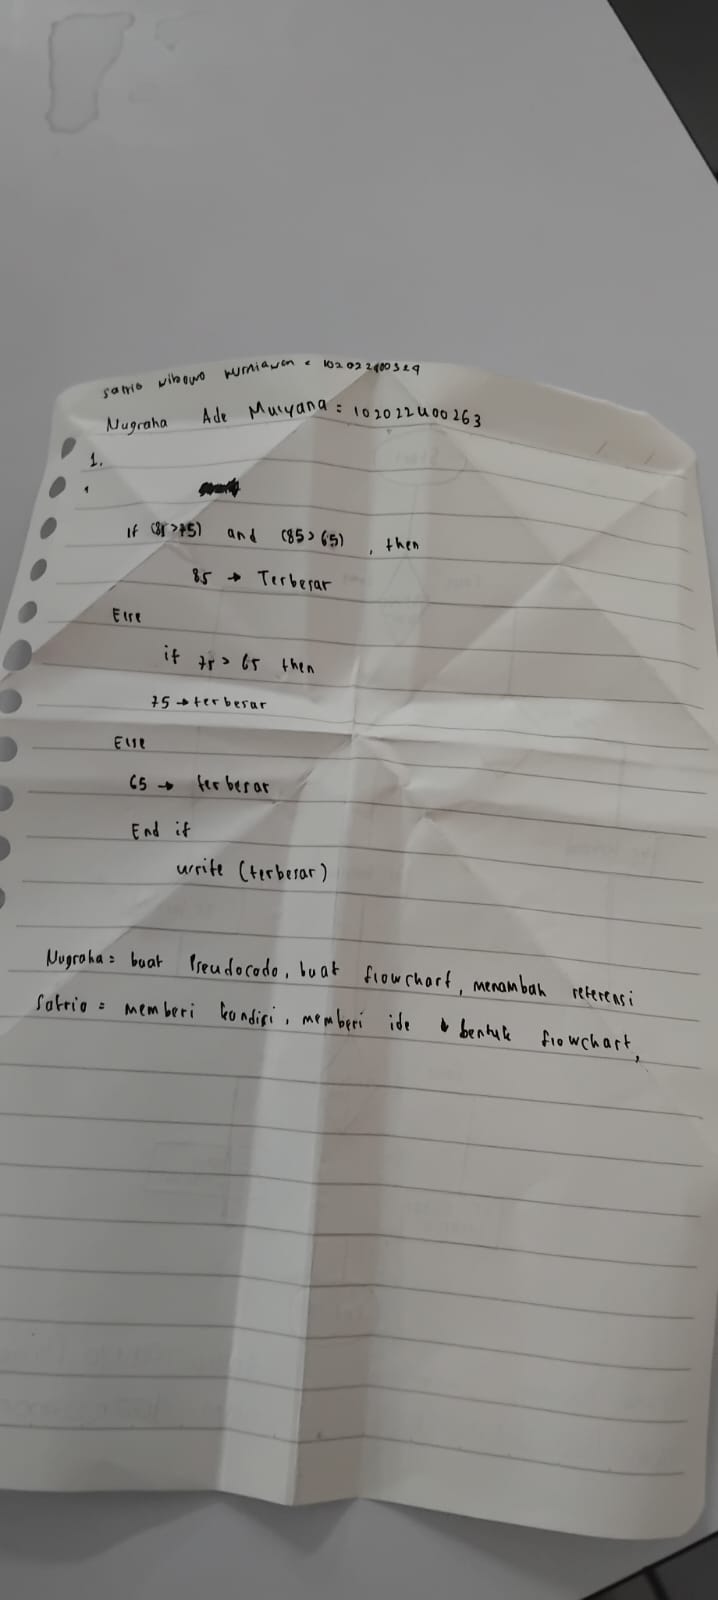 Satrio wibowo kurniawan = 102022400329
Nugraha Ade Mulyana = 102022400263
1.
If (85 > 75) and (85 > 65), then
85 → Terbesar
Else
if 75 > 65 then
75 → terbesar
Else
65 → terbesar
End if
write (terbesar)
Nugraha = buat Pseudocodo, buat flowchart, menambah referensi
Satrio = memberi kondisi, memberi ide bentuk flowchart,